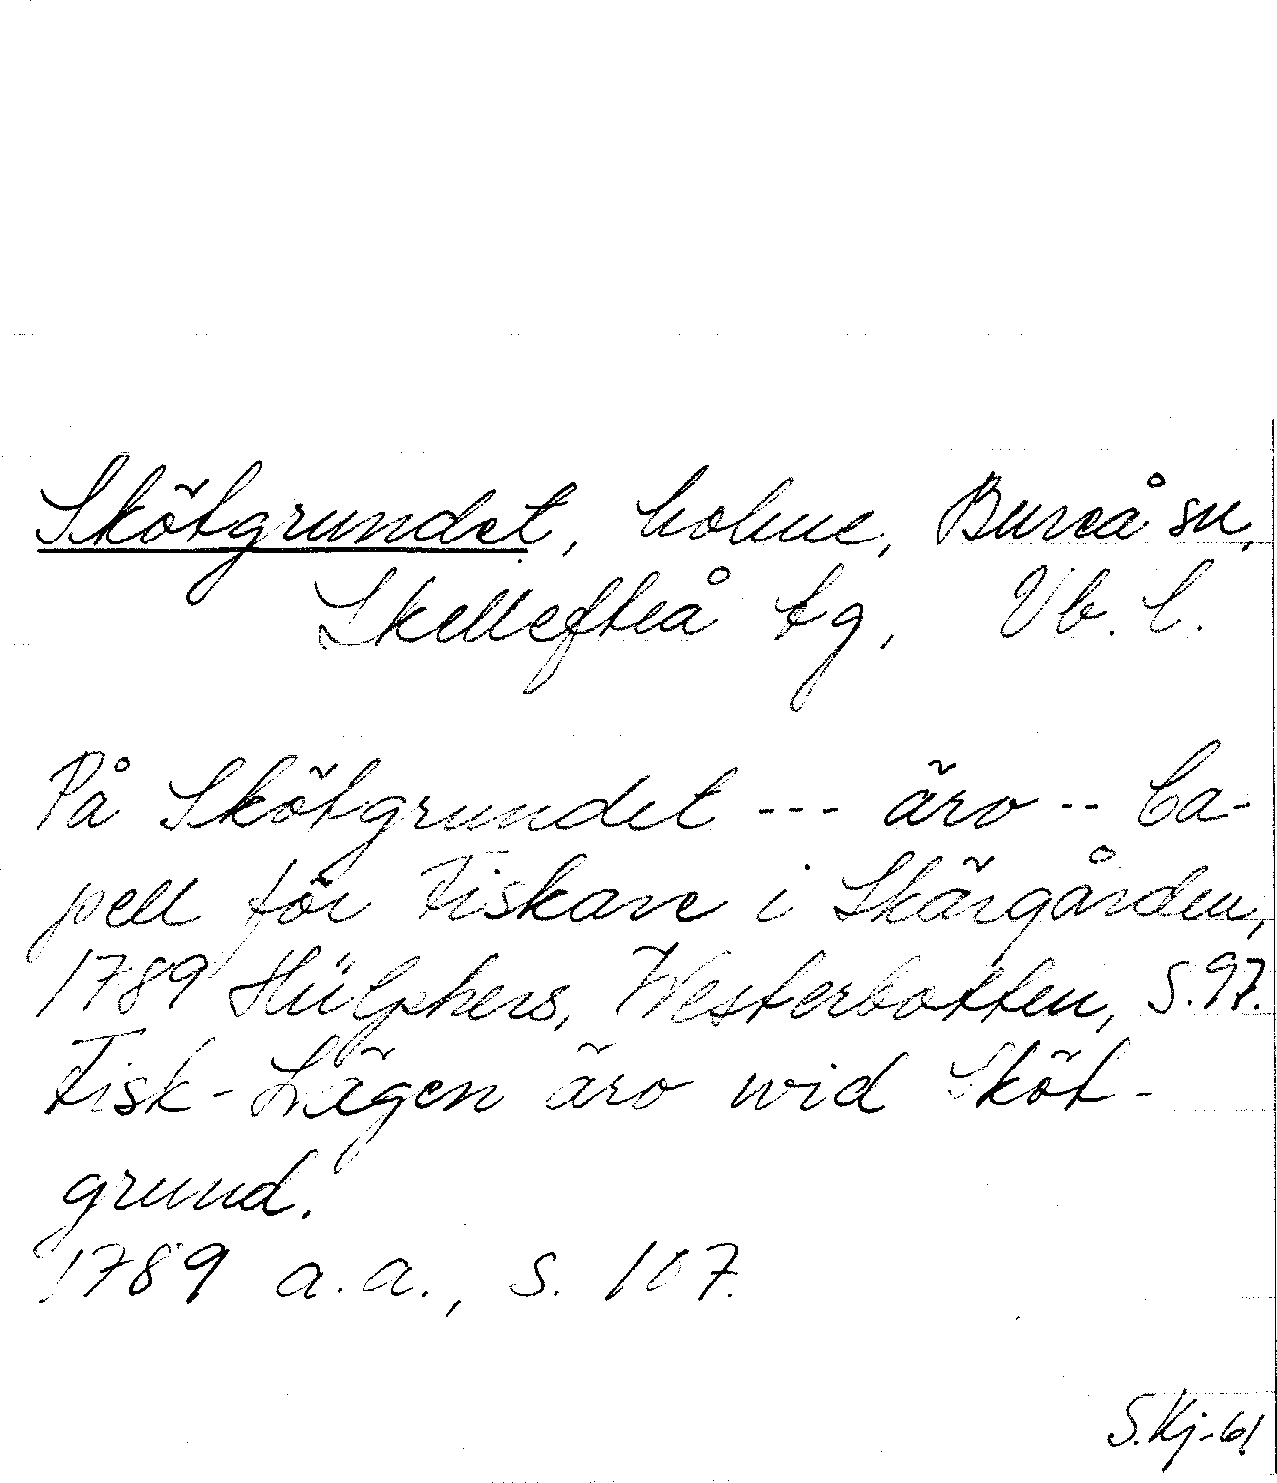 Skötgrundet, holme, Bureå sn,
Skellefteå tg, Vb. l.
På Skötgrundet --- äro -- Ca-
pell för Fiskare i Skärgården,
1789 Hülphers, Westerbotten, s. 97.
Fisk-Lägen äro wid Sköt-
grund.
1789 a.a., s. 107.
S.Kj-61